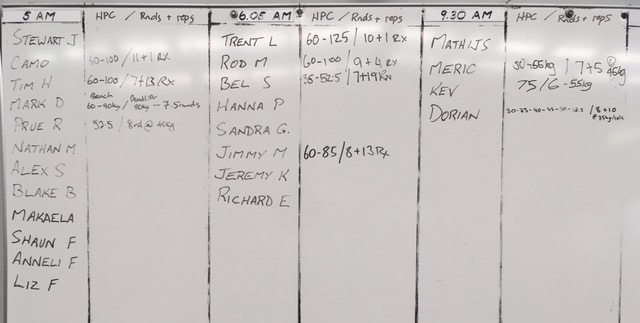 5 AM HPC / Rnds + reps
STEWART J
CAMO 50-100 / 11+1 Rx
TIM H 60-100 / 7+13 Rx
MARK D Bench 60-90kg / 80kg — 7.5 rounds
PRUE R 52.5 / 8rd @ 40kg
NATHAN M
ALEX S
BLAKE B
MAKAELA
SHAUN F
ANNELI F
LIZ F
6.05 AM HPC / Rnds + reps
TRENT L 60-125 / 10+1 Rx
ROD M 60-100 / 9+4 Rx
BEL S 35-52.5 / 7+19 Rx
HANNA P
SANDRA G.
JIMMY M 60-85 / 8+13 Rx
JEREMY K
RICHARD E
9.30 AM HPC / Rnds + reps
MATHIJS
MERIC 50-55kg / 7+5 @ 45kg
KEV 75/6 - 55kg
DORIAN 30-35-40-45-50-52.5 / 8+10